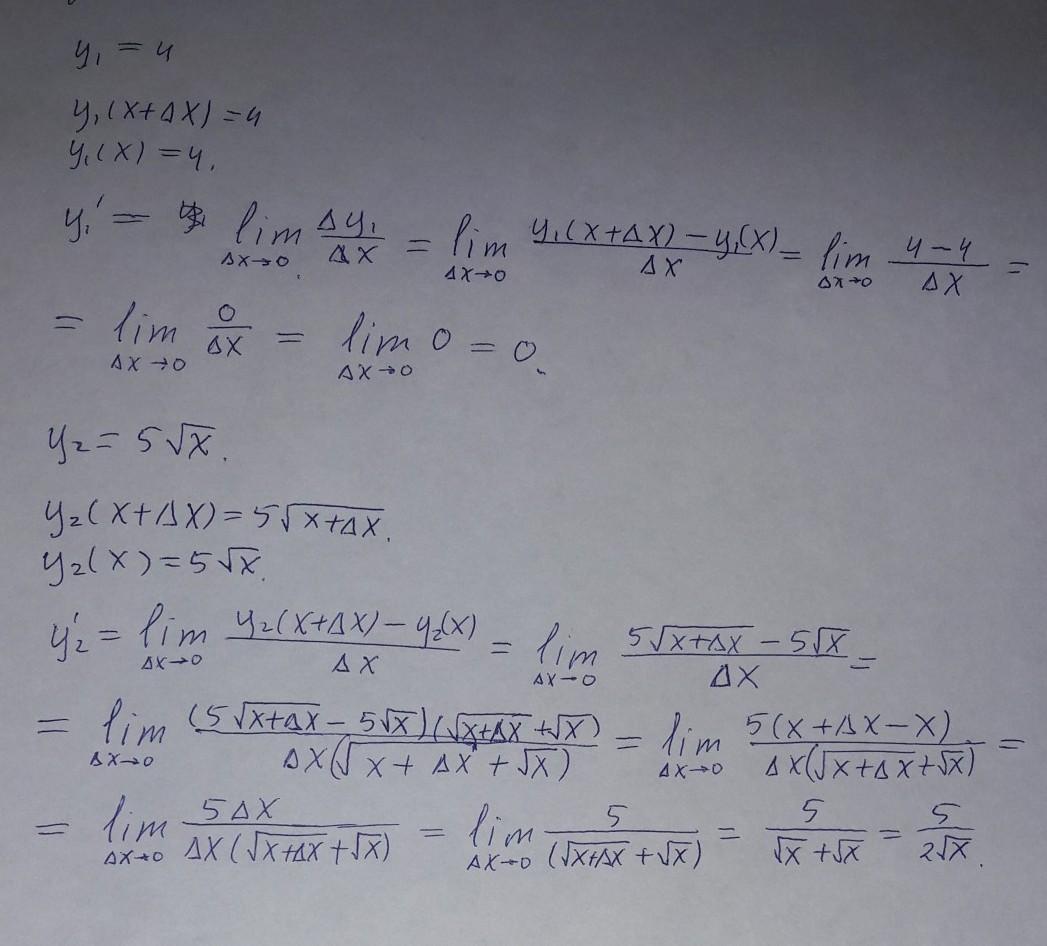 y₁ = 4
y₁(x+Δx) = 4
y₁(x) = 4.
y₁' = lim_{Δx→0} Δy₁/Δx = lim_{Δx→0} (y₁(x+Δx) − y₁(x))/Δx = lim_{Δx→0} (4−4)/Δx =
= lim_{Δx→0} 0/Δx = lim_{Δx→0} 0 = 0.
y₂ = 5√x.
y₂(x+Δx) = 5√(x+Δx).
y₂(x) = 5√x.
y₂' = lim_{Δx→0} (y₂(x+Δx) − y₂(x))/Δx = lim_{Δx→0} (5√(x+Δx) − 5√x)/Δx =
= lim_{Δx→0} (5√(x+Δx) − 5√x)(√(x+Δx) + √x)/(Δx(√(x+Δx) + √x)) = lim_{Δx→0} 5(x+Δx−x)/(Δx(√(x+Δx)+√x)) =
= lim_{Δx→0} 5Δx/(Δx(√(x+Δx)+√x)) = lim_{Δx→0} 5/(√(x+Δx)+√x) = 5/(√x+√x) = 5/(2√x).